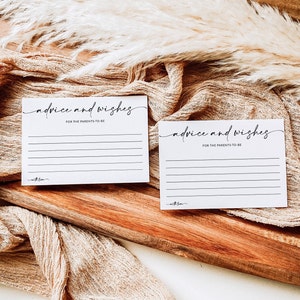 advice and wishes
FOR THE PARENTS TO BE
advice and wishes
FOR THE PARENTS TO BE